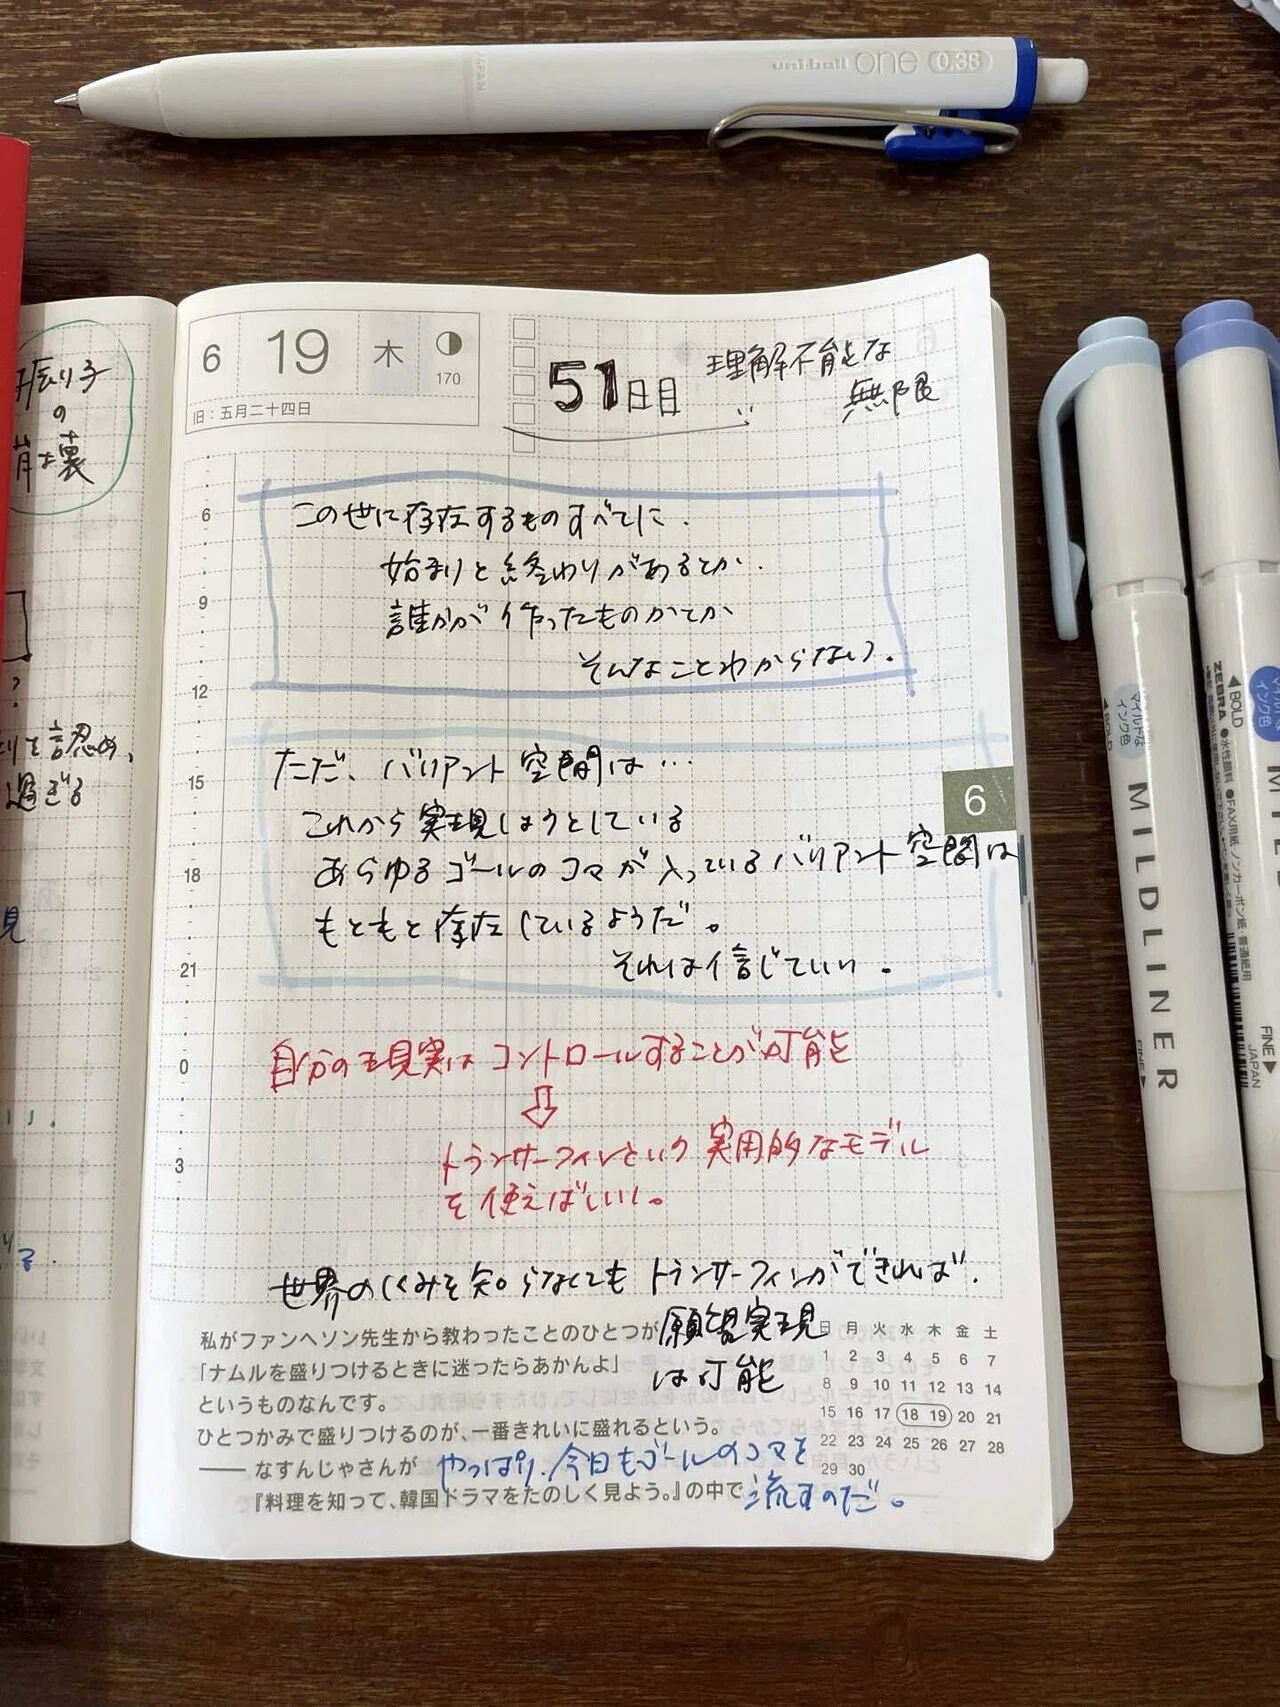 uni-ball one 0.38
JAPAN
振り子
の
崩壊
?
を認め、
過ぎる
見
6 19 木
170
旧：五月二十四日
51日目
理解不能な
無限
6
9
12
15
18
21
0
3
この世に存在するものすべてに、
始まりと終わりがあるとか、
誰かが作ったものかとか
そんなことわからない。
ただ、バリアント空間は…
これから実現しようとしている
あらゆるゴールのコマが入っているバリアント空間は
もともと存在しているようだ。
それは信じていい。
6
自分の現実はコントロールすることが可能
⇩
トランサーフィンという実用的なモデル
を使えばいい。
世界のしくみを知らなくてもトランサーフィンができれば、
願望実現
は可能
私がファンヘソン先生から教わったことのひとつが
「ナムルを盛りつけるときに迷ったらあかんよ」
というものなんです。
ひとつかみで盛りつけるのが、一番きれいに盛れるという。
── なすんじゃさんが
『料理を知って、韓国ドラマをたのしく見よう。』の中で
やっぱり、今日もゴールのコマを
流すのだ。
日 月 火 水 木 金 土
1 2 3 4 5 6 7
8 9 10 11 12 13 14
15 16 17 18 19 20 21
22 23 24 25 26 27 28
29 30
マイルドな
インク色
◀BOLD
MILDLINER
FINE▶
マイルドな
インク色
◀BOLD
ZEBRA
●水性顔料 ●FAX用紙・ノンカーボン紙・普通紙用
FINE▶
JAPAN